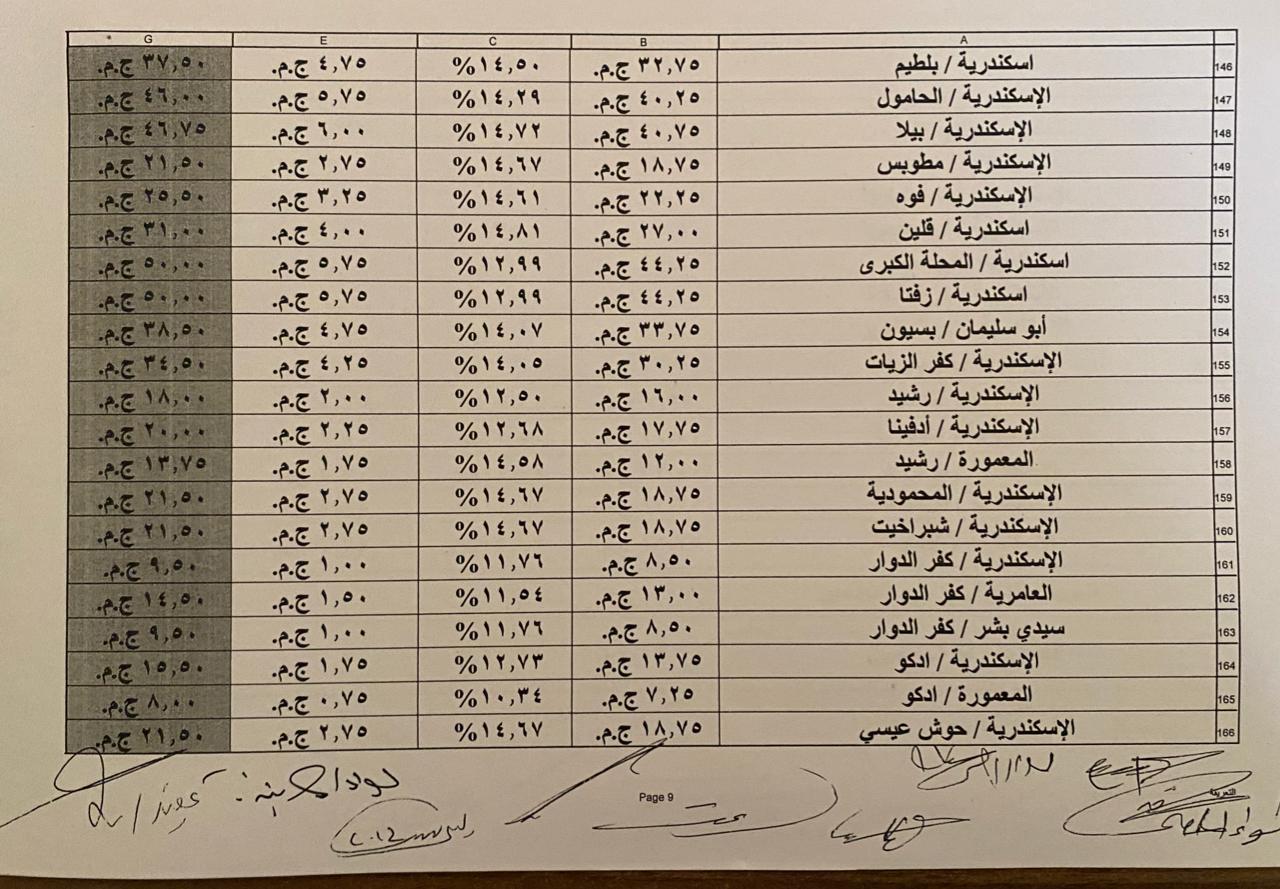 A B C E G
146 اسكندرية / بلطيم ٣٢,٧٥ ج.م. ١٤,٥٠% ٤,٧٥ ج.م. ٣٧,٥٠ ج.م.
147 الإسكندرية / الحامول ٤٠,٢٥ ج.م. ١٤,٢٩% ٥,٧٥ ج.م. ٤٦,٠٠ ج.م.
148 الإسكندرية / بيلا ٤٠,٧٥ ج.م. ١٤,٧٢% ٦,٠٠ ج.م. ٤٦,٧٥ ج.م.
149 الإسكندرية / مطوبس ١٨,٧٥ ج.م. ١٤,٦٧% ٢,٧٥ ج.م. ٢١,٥٠ ج.م.
150 الإسكندرية / فوه ٢٢,٢٥ ج.م. ١٤,٦١% ٣,٢٥ ج.م. ٢٥,٥٠ ج.م.
151 اسكندرية / قلين ٢٧,٠٠ ج.م. ١٤,٨١% ٤,٠٠ ج.م. ٣١,٠٠ ج.م.
152 اسكندرية / المحلة الكبرى ٤٤,٢٥ ج.م. ١٢,٩٩% ٥,٧٥ ج.م. ٥٠,٠٠ ج.م.
153 اسكندرية / زفتا ٤٤,٢٥ ج.م. ١٢,٩٩% ٥,٧٥ ج.م. ٥٠,٠٠ ج.م.
154 أبو سليمان / بسيون ٣٣,٧٥ ج.م. ١٤,٠٧% ٤,٧٥ ج.م. ٣٨,٥٠ ج.م.
155 الإسكندرية / كفر الزيات ٣٠,٢٥ ج.م. ١٤,٠٥% ٤,٢٥ ج.م. ٣٤,٥٠ ج.م.
156 الإسكندرية / رشيد ١٦,٠٠ ج.م. ١٢,٥٠% ٢,٠٠ ج.م. ١٨,٠٠ ج.م.
157 الإسكندرية / أدفينا ١٧,٧٥ ج.م. ١٢,٦٨% ٢,٢٥ ج.م. ٢٠,٠٠ ج.م.
158 المعمورة / رشيد ١٢,٠٠ ج.م. ١٤,٥٨% ١,٧٥ ج.م. ١٣,٧٥ ج.م.
159 الإسكندرية / المحمودية ١٨,٧٥ ج.م. ١٤,٦٧% ٢,٧٥ ج.م. ٢١,٥٠ ج.م.
160 الإسكندرية / شبراخيت ١٨,٧٥ ج.م. ١٤,٦٧% ٢,٧٥ ج.م. ٢١,٥٠ ج.م.
161 الإسكندرية / كفر الدوار ٨,٥٠ ج.م. ١١,٧٦% ١,٠٠ ج.م. ٩,٥٠ ج.م.
162 العامرية / كفر الدوار ١٣,٠٠ ج.م. ١١,٥٤% ١,٥٠ ج.م. ١٤,٥٠ ج.م.
163 سيدي بشر / كفر الدوار ٨,٥٠ ج.م. ١١,٧٦% ١,٠٠ ج.م. ٩,٥٠ ج.م.
164 الإسكندرية / ادكو ١٣,٧٥ ج.م. ١٢,٧٣% ١,٧٥ ج.م. ١٥,٥٠ ج.م.
165 المعمورة / ادكو ٧,٢٥ ج.م. ١٠,٣٤% ٠,٧٥ ج.م. ٨,٠٠ ج.م.
166 الإسكندرية / حوش عيسي ١٨,٧٥ ج.م. ١٤,٦٧% ٢,٧٥ ج.م. ٢١,٥٠ ج.م.
التعريفة
Page 9